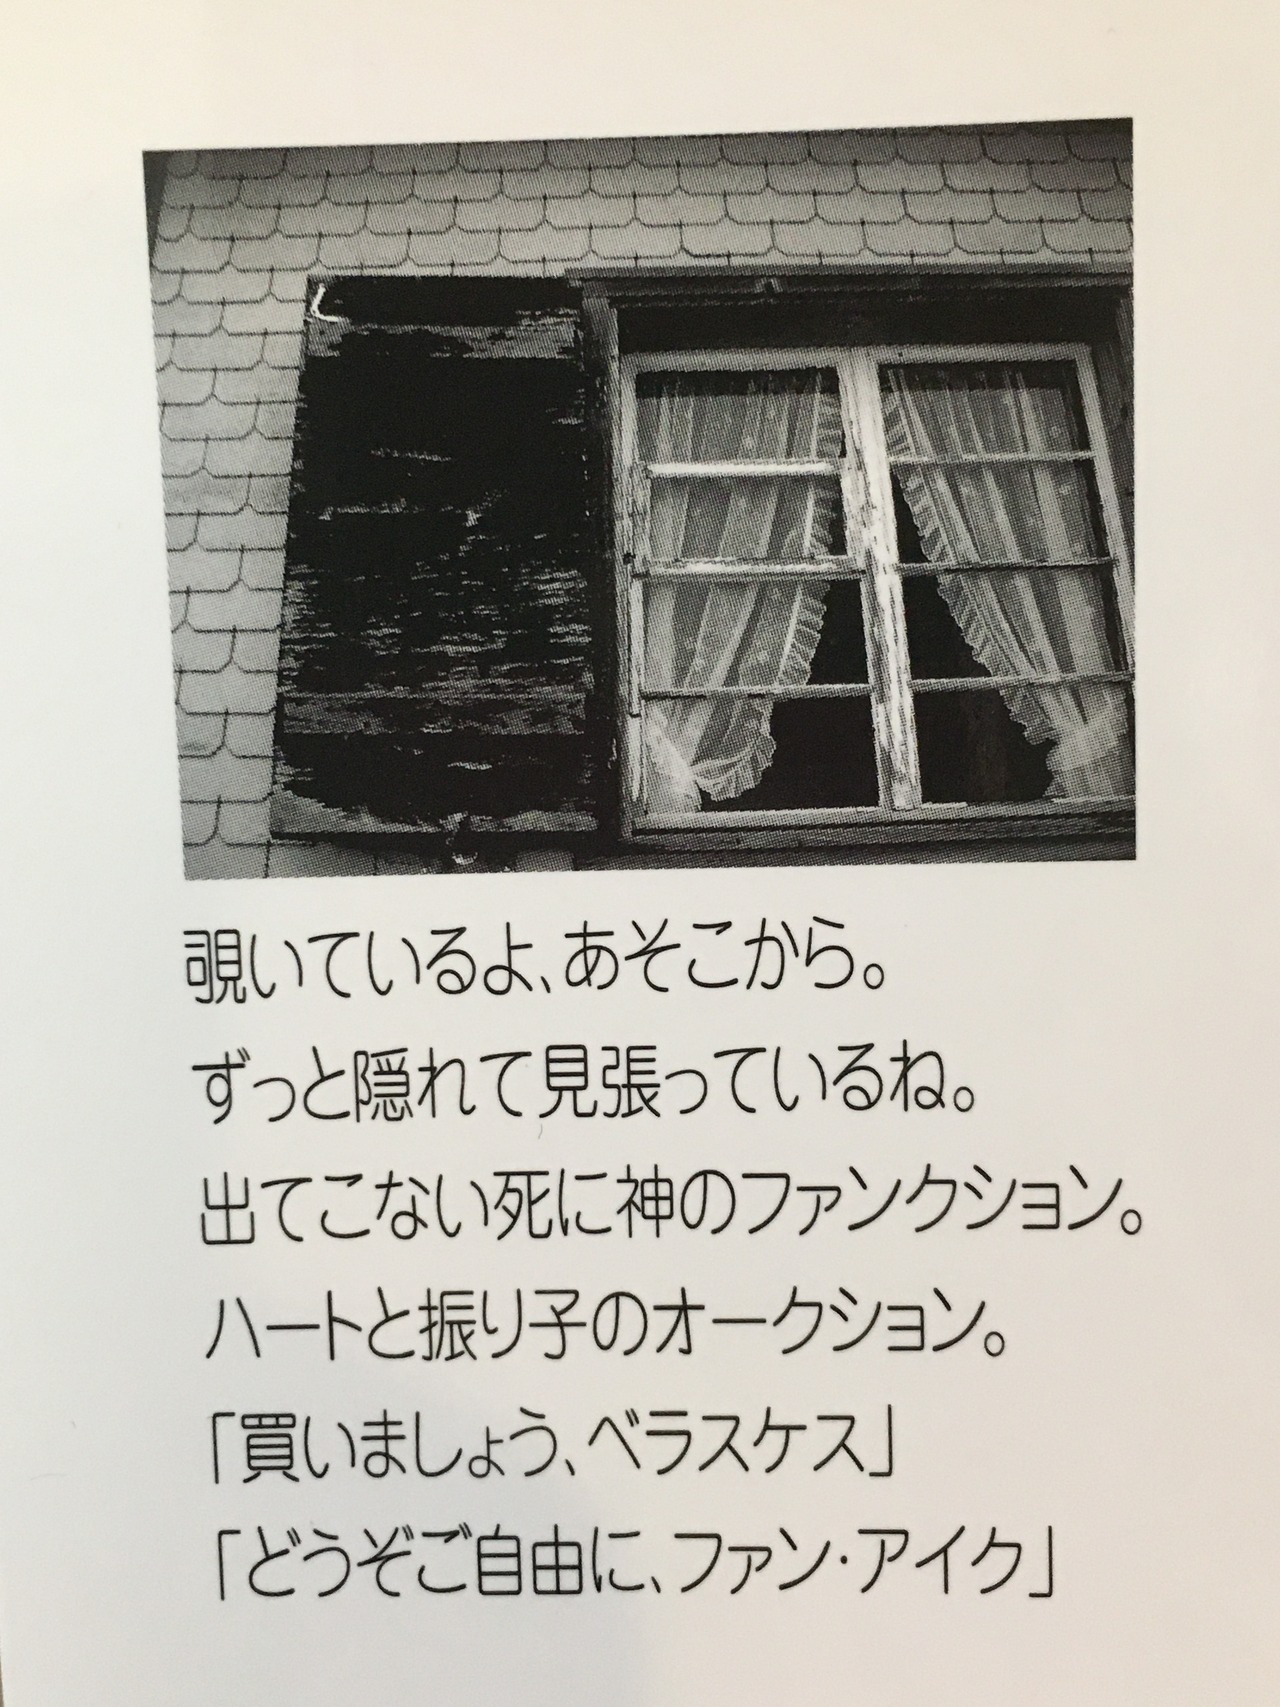 覗いているよ、あそこから。
ずっと隠れて見張っているね。
出てこない死に神のファンクション。
ハートと振り子のオークション。
「買いましょう、ベラスケス」
「どうぞご自由に、ファン・アイク」